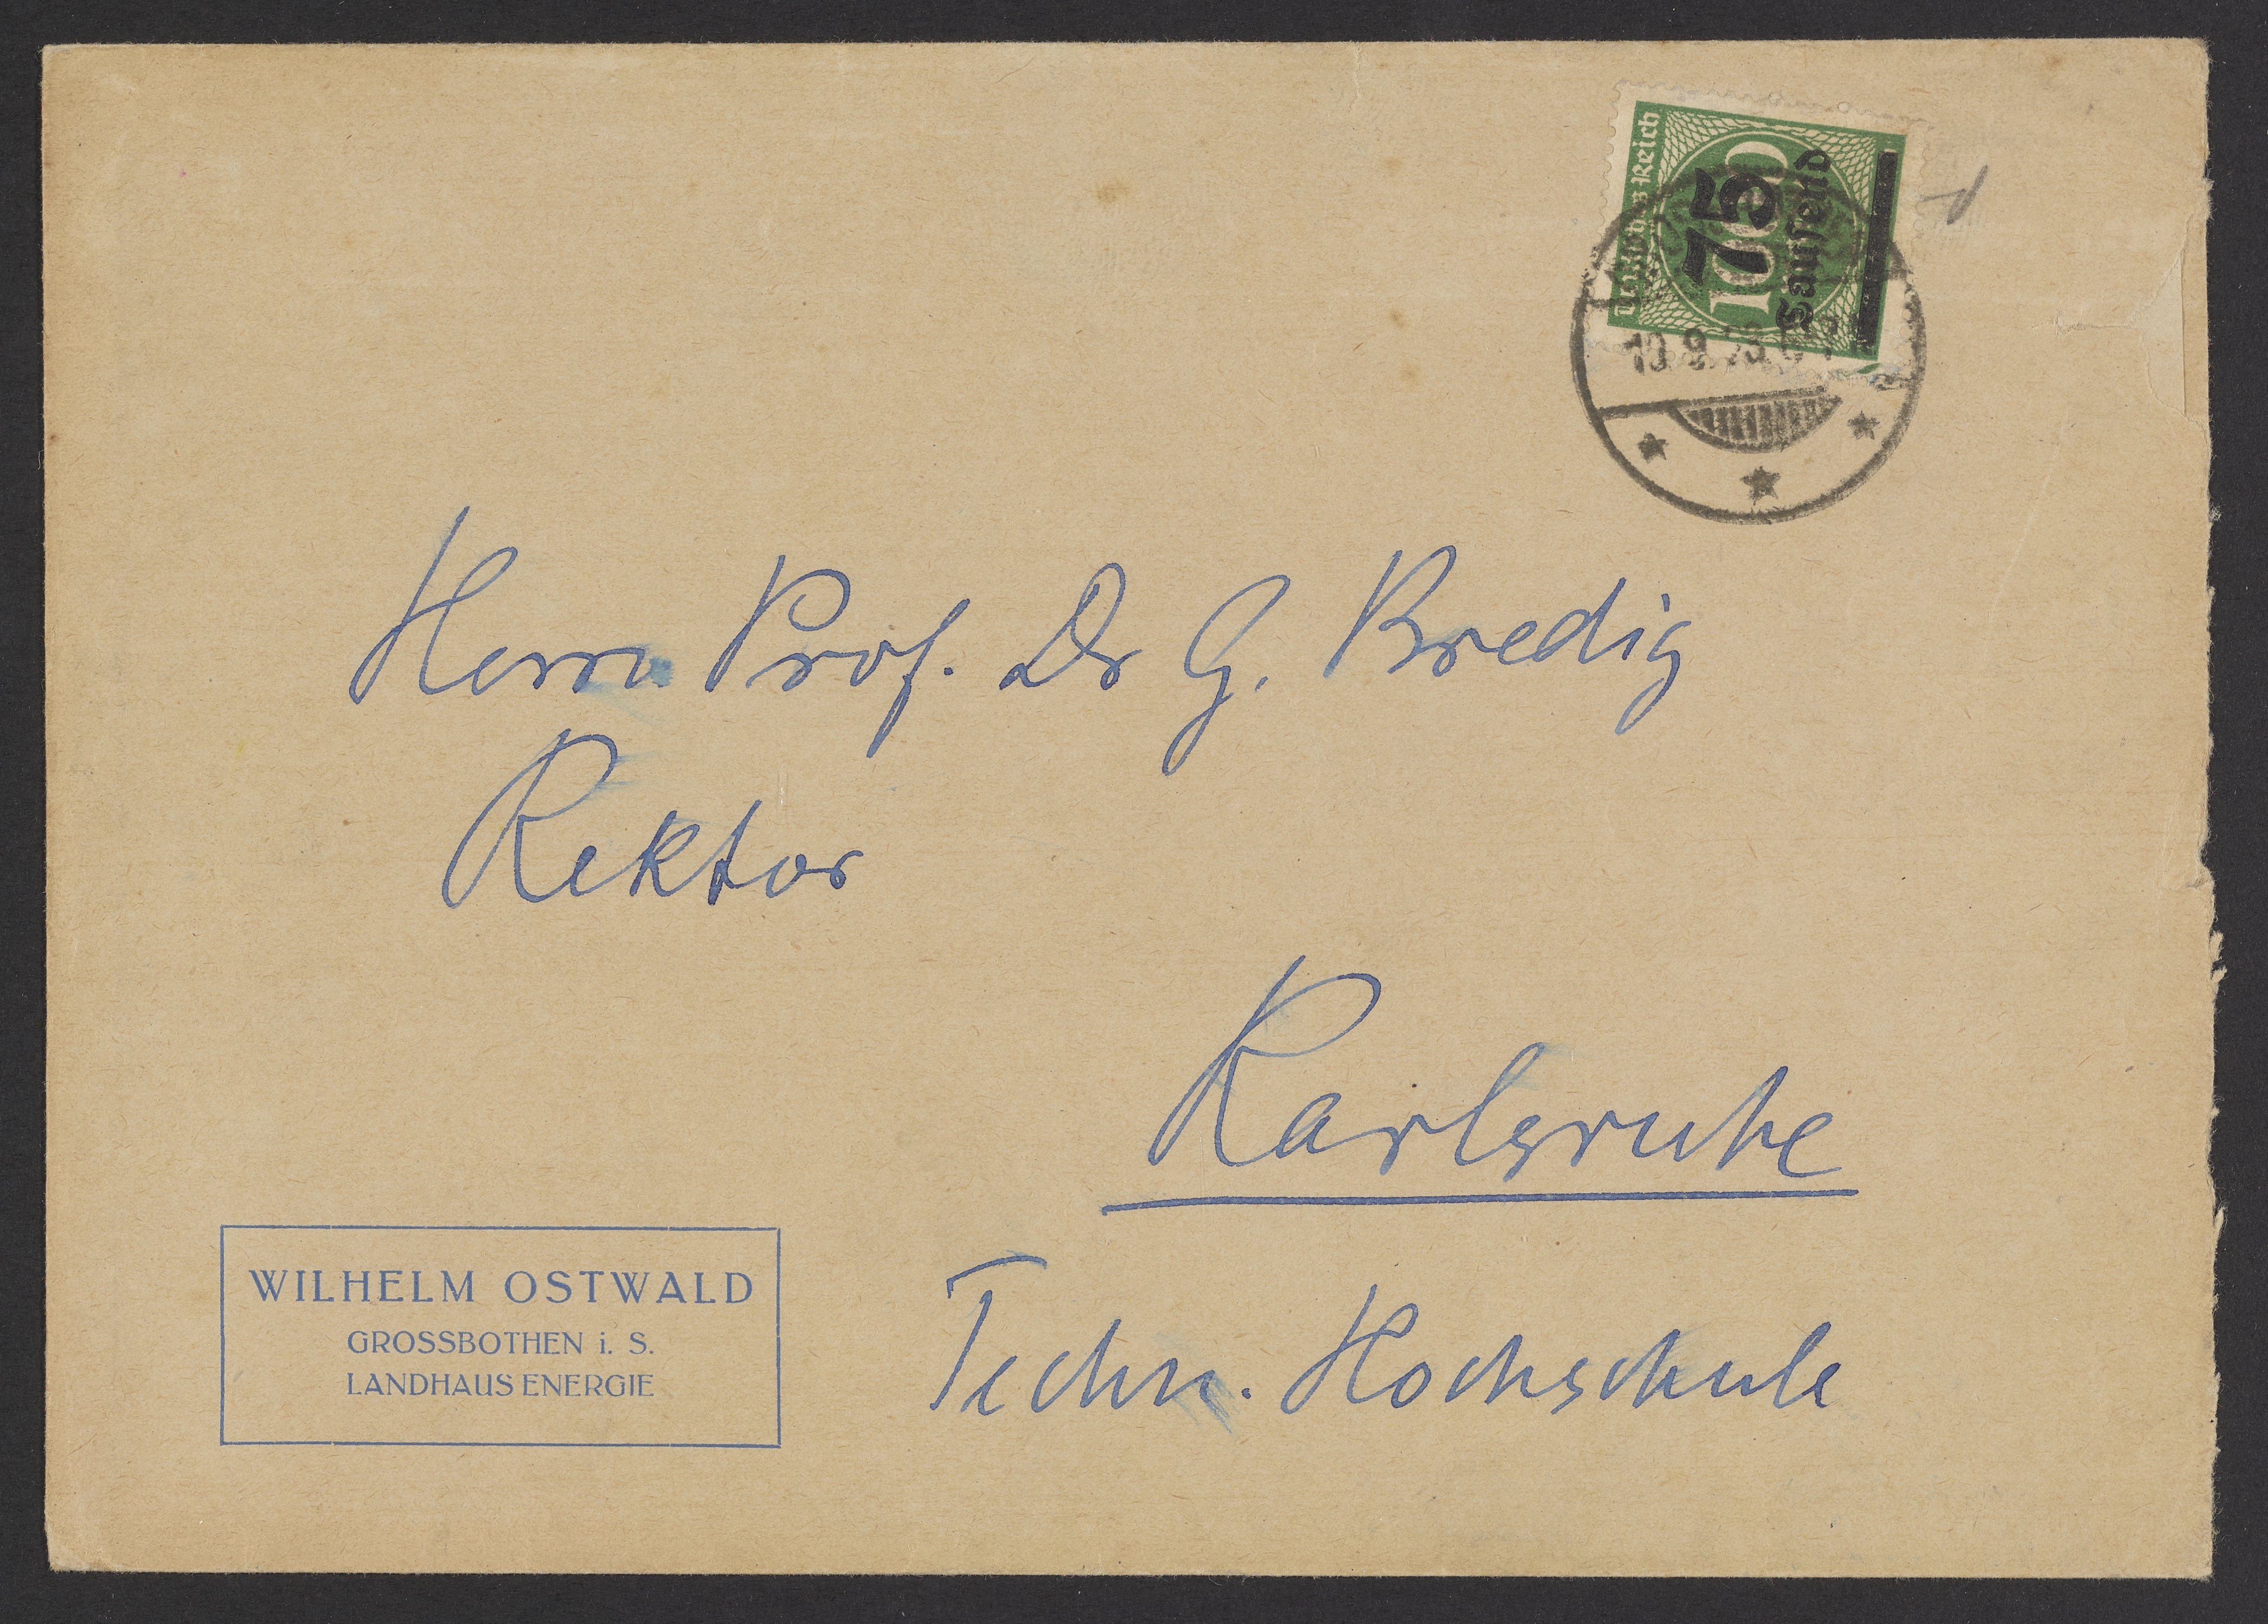 Deutsches Reich
1000
75
Tausend
10.9.23
Herrn Prof. Dr G. Bredig
Rektor
Karlsruhe
Techn. Hochschule
WILHELM OSTWALD
GROSSBOTHEN i. S.
LANDHAUS ENERGIE